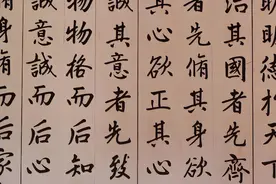 明德於天下
治其國者先齊
者先脩其身欲
其心欲正其心
誠其意者先致
物物格而后知
意誠而后心
身脩而后家